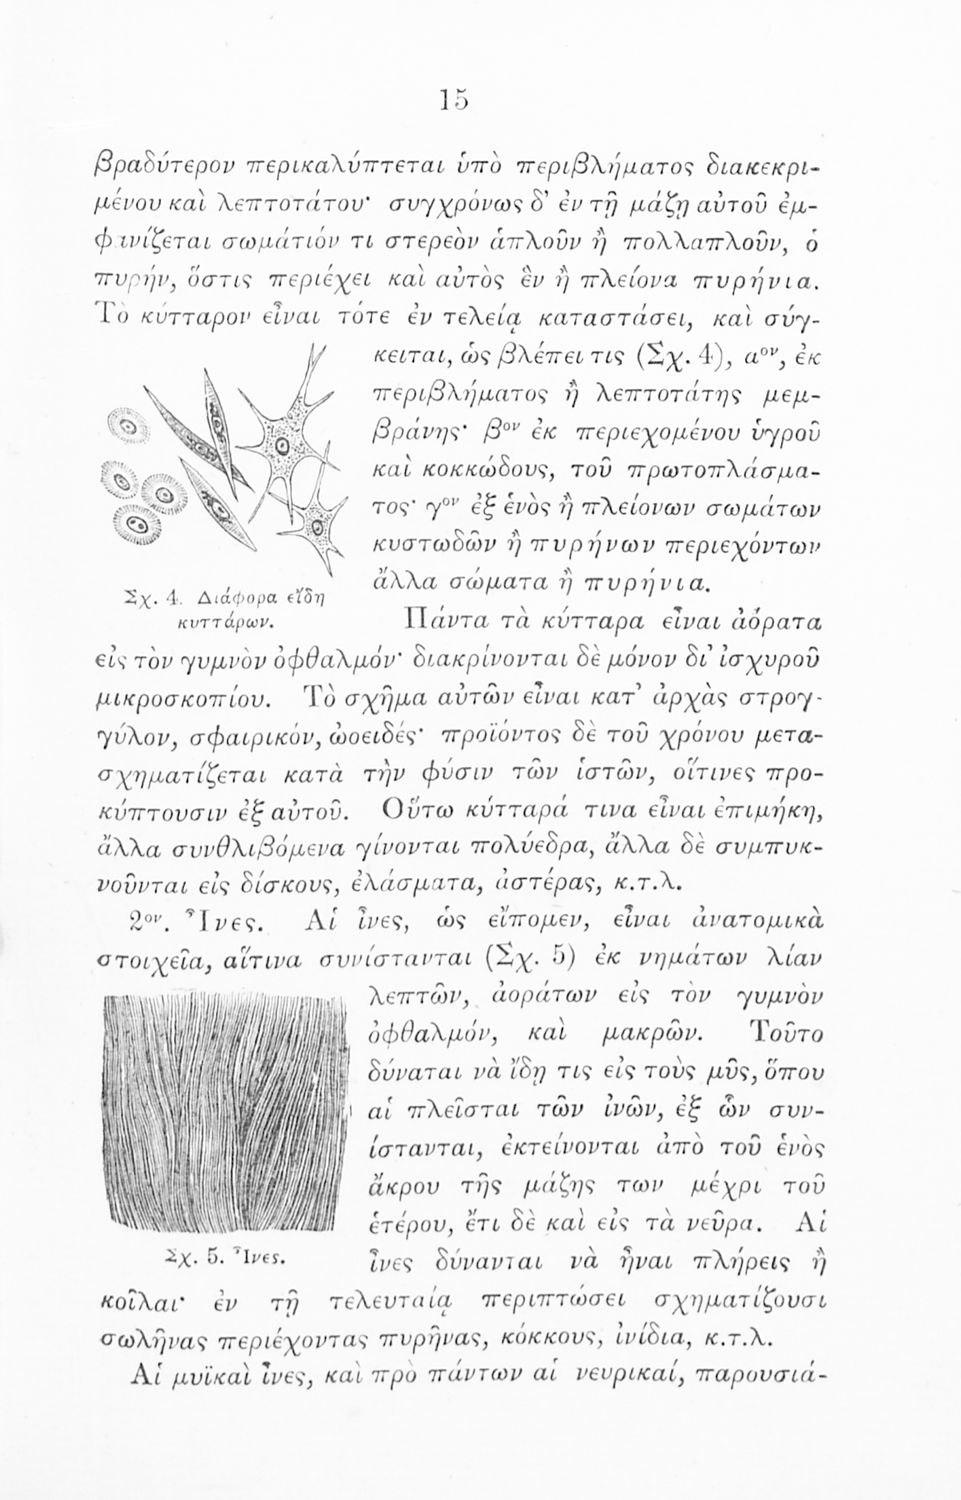 15
βραδύτερον περικαλύπτεται ὑπὸ περιβλήματος διακεκρι-
μένου καὶ λεπτοτάτου· συγχρόνως δ' ἐν τῇ μάζῃ αὐτοῦ ἐμ-
φανίζεται σωμάτιόν τι στερεὸν ἁπλοῦν ἢ πολλαπλοῦν, ὁ
πυρήν, ὅστις περιέχει καὶ αὐτὸς ἓν ἢ πλείονα πυρήνια.
Τὸ κύτταρον εἶναι τότε ἐν τελείᾳ καταστάσει, καὶ σύγ-
κειται, ὡς βλέπει τις (Σχ. 4), αον, ἐκ
περιβλήματος ἢ λεπτοτάτης μεμ-
βράνης· βον ἐκ περιεχομένου ὑγροῦ
καὶ κοκκώδους, τοῦ πρωτοπλάσμα-
τος· γον ἐξ ἑνὸς ἢ πλείονων σωμάτων
κυστωδῶν ἢ πυρήνων περιεχόντων
ἄλλα σώματα ἢ πυρήνια.
Σχ. 4. Διάφορα εἴδη
κυττάρων.
Πάντα τὰ κύτταρα εἶναι ἀόρατα
εἰς τὸν γυμνὸν ὀφθαλμόν· διακρίνονται δὲ μόνον δι' ἰσχυροῦ
μικροσκοπίου. Τὸ σχῆμα αὐτῶν εἶναι κατ' ἀρχὰς στρογ-
γύλον, σφαιρικόν, ὠοειδές· προϊόντος δὲ τοῦ χρόνου μετα-
σχηματίζεται κατὰ τὴν φύσιν τῶν ἱστῶν, οἵτινες προ-
κύπτουσιν ἐξ αὐτοῦ. Οὕτω κύτταρά τινα εἶναι ἐπιμήκη,
ἄλλα συνθλιβόμενα γίνονται πολύεδρα, ἄλλα δὲ συμπυκ-
νοῦνται εἰς δίσκους, ἐλάσματα, ἀστέρας, κ.τ.λ.
2ον. Ἶνες. Αἱ ἶνες, ὡς εἴπομεν, εἶναι ἀνατομικὰ
στοιχεῖα, αἵτινα συνίστανται (Σχ. 5) ἐκ νημάτων λίαν
λεπτῶν, ἀοράτων εἰς τὸν γυμνὸν
ὀφθαλμόν, καὶ μακρῶν. Τοῦτο
δύναται νὰ ἴδῃ τις εἰς τοὺς μῦς, ὅπου
αἱ πλεῖσται τῶν ἰνῶν, ἐξ ὧν συν-
ίστανται, ἐκτείνονται ἀπὸ τοῦ ἑνὸς
ἄκρου τῆς μάζης των μέχρι τοῦ
ἑτέρου, ἔτι δὲ καὶ εἰς τὰ νεῦρα. Αἱ
Σχ. 5. Ἶνες.
ἶνες δύνανται νὰ ἦναι πλήρεις ἢ
κοῖλαι· ἐν τῇ τελευταίᾳ περιπτώσει σχηματίζουσι
σωλῆνας περιέχοντας πυρῆνας, κόκκους, ἰνίδια, κ.τ.λ.
Αἱ μυϊκαὶ ἶνες, καὶ πρὸ πάντων αἱ νευρικαί, παρουσιά-